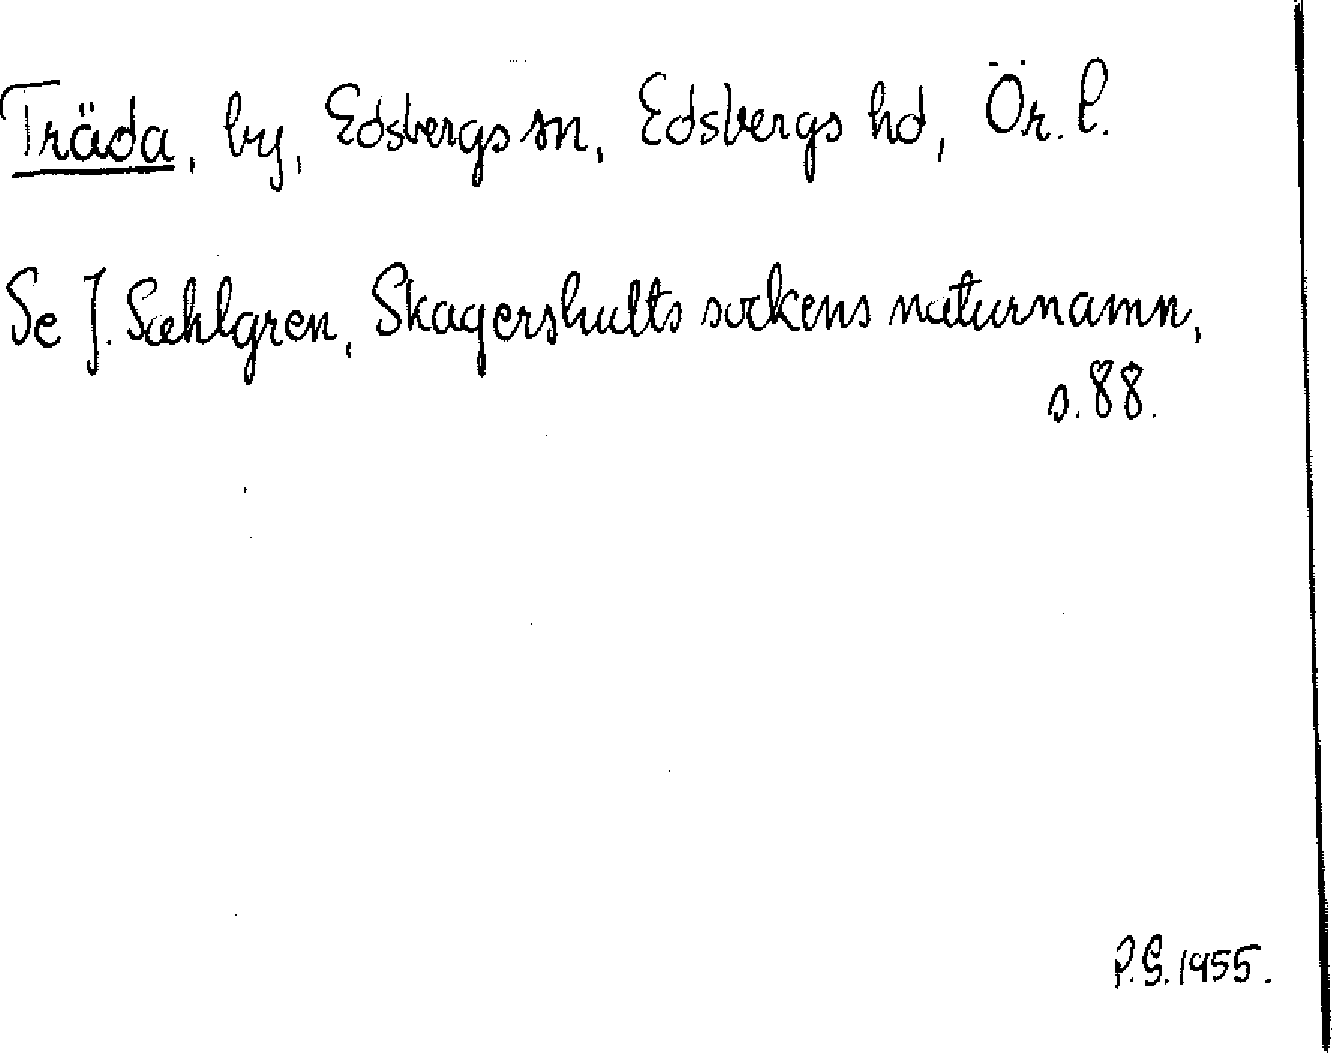 Träda, by, Edsbergs sn, Edsbergs hd, Ör. l.
Se J. Sahlgren, Skagershults sockens naturnamn,
s. 88.
P.G. 1955.